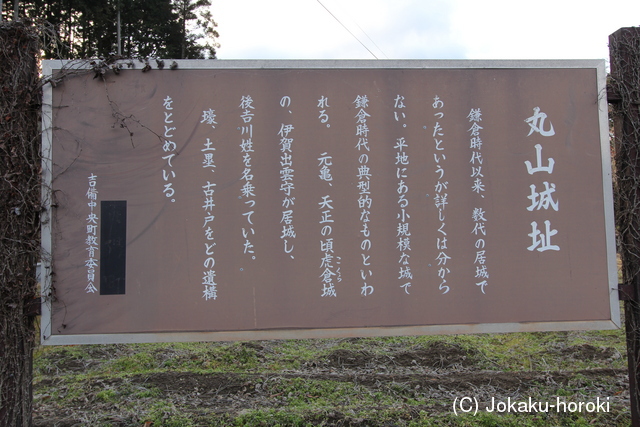 丸山城址
鎌倉時代以来、数代の居城で
あったというが詳しくは分から
ない。平地にある小規模な城で
鎌倉時代の典型的なものといわ
れる。 元亀、天正の頃虎倉城
こくら
の、伊賀出雲守が居城し、
後吉川姓を名乗っていた。
壕、土里、古井戸をどの遺構
をとどめている。
吉備中央町教育委員会
(C) Jokaku-horoki